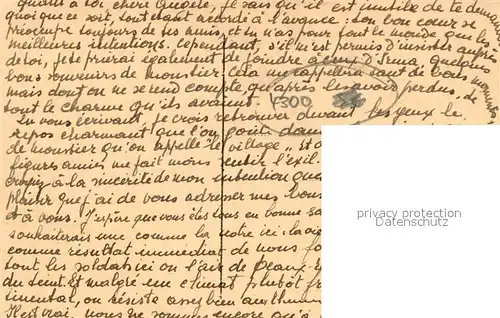 quant à toi, chère Odette, je sais qu'il est inutile de te demander
quoi que ce soit, tout étant accordé à l'avance : ton bon cœur se
préoccupe toujours de tes amis, et tu n'as pour tout le monde que les
meilleures intentions. Cependant, s'il m'est permis d'insister auprès
de toi, je te prierai également de joindre à ceux d'Irma, quelques
bons souvenirs de moustier. Cela me rappellera tant de bons moments
mais dont on ne se rend compte qu'après les avoir perdus, de
tout le charme qu'ils avaient. 4300
En vous écrivant, je crois retrouver devant les yeux le
repos charmant que l'on goûte dans
de moustier qu'on appelle "le village". et
figures amies me fait moins sentir l'exil.
croyez à la sincérité de mon intention
plaisir que j'ai de vous adresser mes
et à vous. J'espère que vous êtes tous en bonne
souhaiterais une comme la notre ici : la vie
comme résultat immédiat de nous
tout les soldats ici on l'air de
du saint. Et malgré un climat plutôt
on résiste assez bien
Il est vrai, nous ne sommes encore qu'à
privacy protection